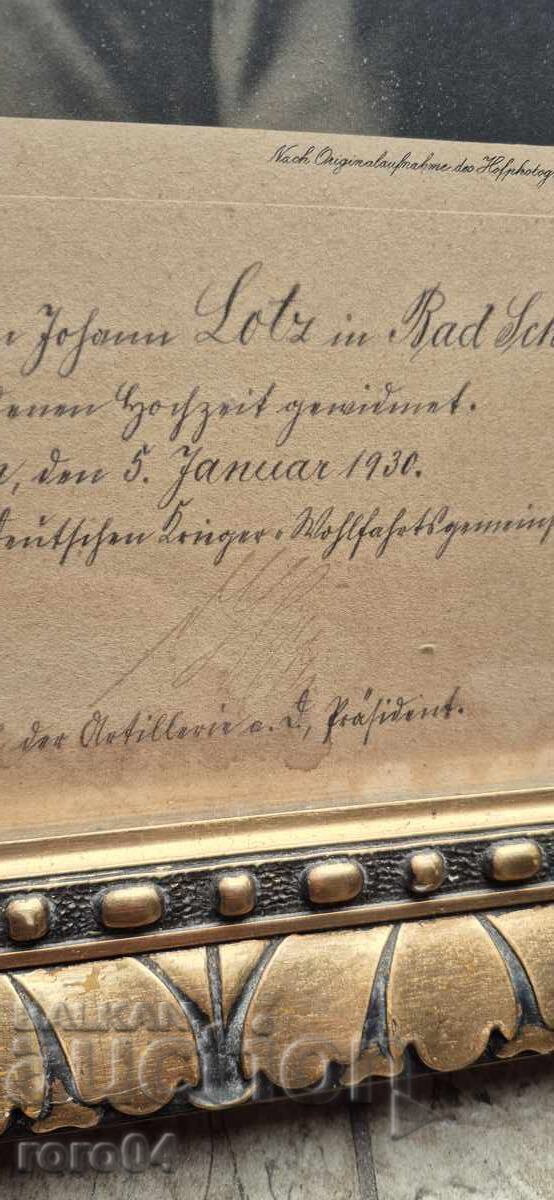 Nach Originalaufnahme des Hofphotog
n Johann Lotz in Bad Sch
denen Hochzeit gewidmet.
, den 5. Januar 1930.
deutschen Krieger-Wohlfahrtsgemeinsch
der Artillerie a. D., Präsident.
BALKAN AUCTION
roro04